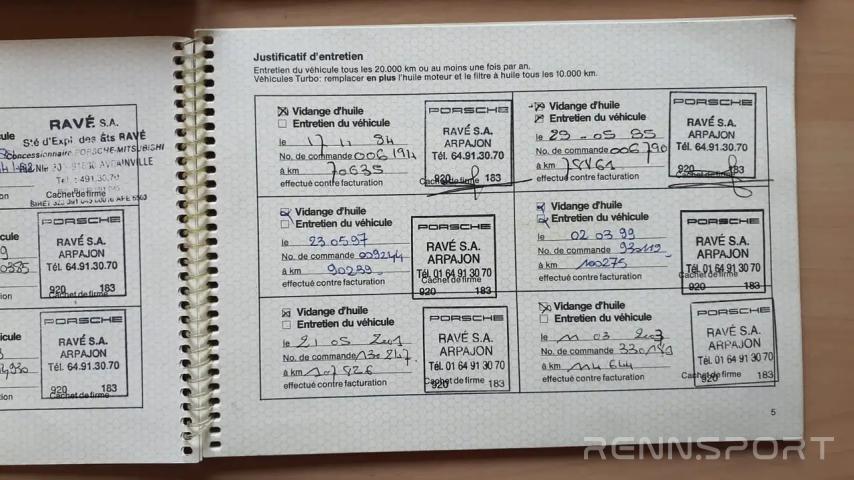 cule
RAVÉ S.A.
Sté d'Expl des éts RAVÉ
Concessionnaire PORSCHE-MITSUBISHI
AVRAINVILLE
Cachet de firme
ion
PORSCHE
cule
RAVÉ S.A.
ARPAJON
Tél. 64.91.30.70
920 183
Cachet de firme
ion
PORSCHE
icule
RAVÉ S.A.
ARPAJON
Tél. 64.91.30.70
920 183
Cachet de firme
ion
Justificatif d'entretien
Entretien du véhicule tous les 20.000 km ou au moins une fois par an.
Véhicules Turbo: remplacer en plus l'huile moteur et le filtre à huile tous les 10.000 km.
Vidange d'huile
Entretien du véhicule
le 17 11 94
No. de commande 006194
à km 70635
effectué contre facturation
PORSCHE
RAVÉ S.A.
ARPAJON
Tél. 64.91.30.70
920 183
Cachet de firme
Vidange d'huile
Entretien du véhicule
le 29 - 05 95
No. de commande 006790
à km
effectué contre facturation
PORSCHE
RAVÉ S.A.
ARPAJON
Tél. 64.91.30.70
920 183
Cachet de firme
Vidange d'huile
Entretien du véhicule
le 23.05.97
No. de commande 009244
à km 90289
effectué contre facturation
PORSCHE
RAVÉ S.A.
ARPAJON
Tél. 01 64 91 30 70
920 183
Cachet de firme
Vidange d'huile
Entretien du véhicule
le 02 03 99
No. de commande
à km 100275
effectué contre facturation
PORSCHE
RAVÉ S.A.
ARPAJON
Tél. 01 64 91 30 70
920 183
Cachet de firme
Vidange d'huile
Entretien du véhicule
le 21 05 2001
No. de commande 130247
à km 107826
effectué contre facturation
PORSCHE
RAVÉ S.A.
ARPAJON
Tél. 01 64 91 30 70
920 183
Cachet de firme
Vidange d'huile
Entretien du véhicule
le 11 03 2003
No. de commande
à km 114644
effectué contre facturation
PORSCHE
RAVÉ S.A.
ARPAJON
Tél. 01 64 91 30 70
920 183
Cachet de firme
5
RENNSPORT